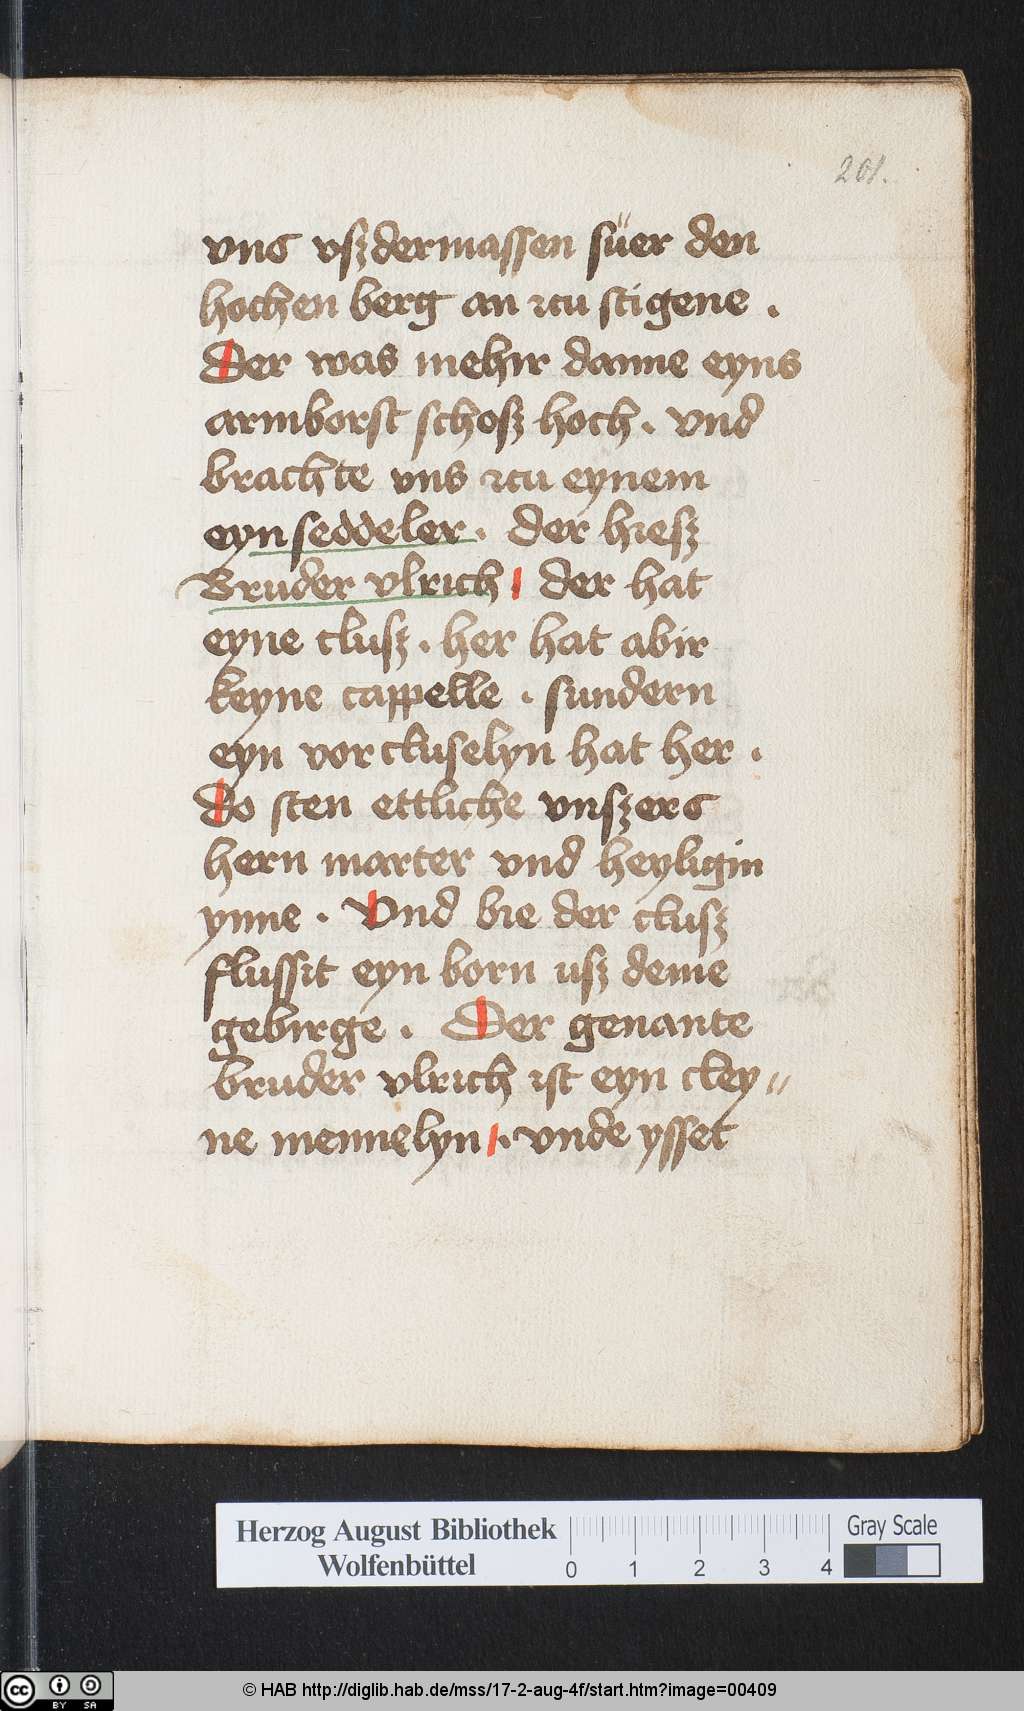 261.
vns vszdermassen süer den
hochen berg an zcu stigene .
Der was mehir danne eyns
armborst schosz hoch . vnd
brachte vns zcu eynem
eynseddeler . der hiesz
Bruder vlrich der hat
eyne clusz . her hat abir
keyne cappelle . sundern
eyn vorcluselyn hat her .
Do sten ettliche vnszers
hern marter vnd heyligin
ynne . Vnd bie der clusz
flussit eyn born usz deme
gebirge . Der genante
bruder vlrich ist eyn cley〃
ne mennelyn . vnde ysset
Herzog August Bibliothek
Wolfenbüttel
0 1 2 3 4
Gray Scale
cc BY SA
© HAB http://diglib.hab.de/mss/17-2-aug-4f/start.htm?image=00409